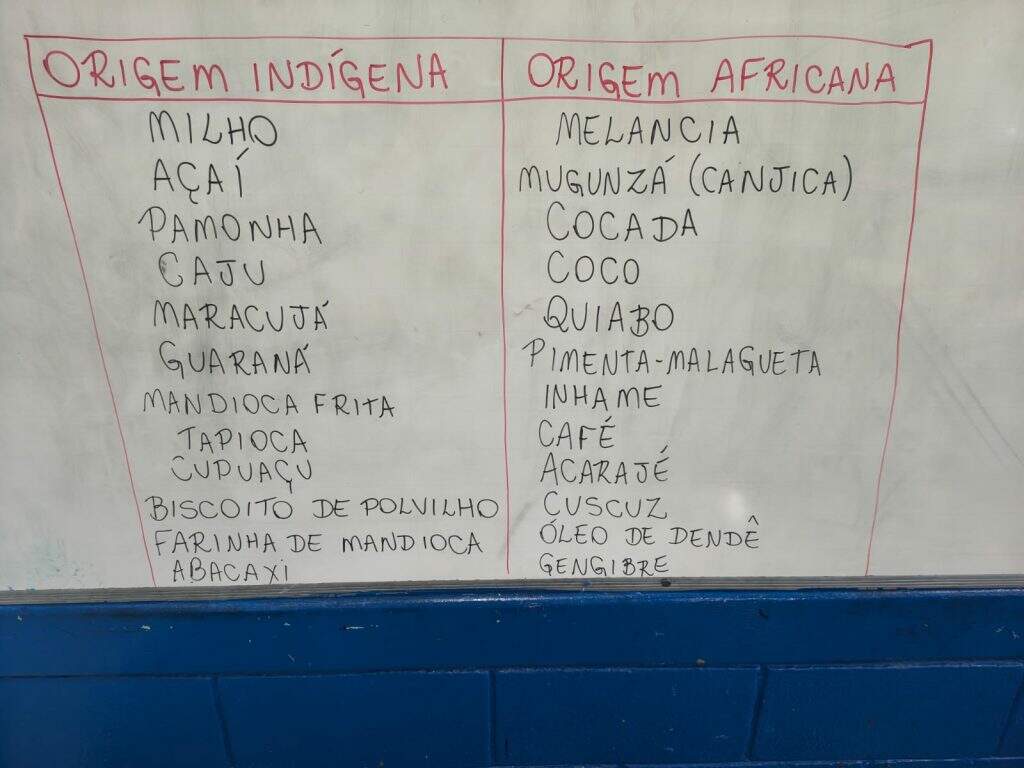 ORIGEM INDÍGENA
MILHO
AÇAÍ
PAMONHA
CAJU
MARACUJÁ
GUARANÁ
MANDIOCA FRITA
TAPIOCA
CUPUAÇU
BISCOITO DE POLVILHO
FARINHA DE MANDIOCA
ABACAXI
ORIGEM AFRICANA
MELANCIA
MUGUNZÁ (CANJICA)
COCADA
COCO
QUIABO
PIMENTA-MALAGUETA
INHAME
CAFÉ
ACARAJÉ
CUSCUZ
ÓLEO DE DENDÊ
GENGIBRE